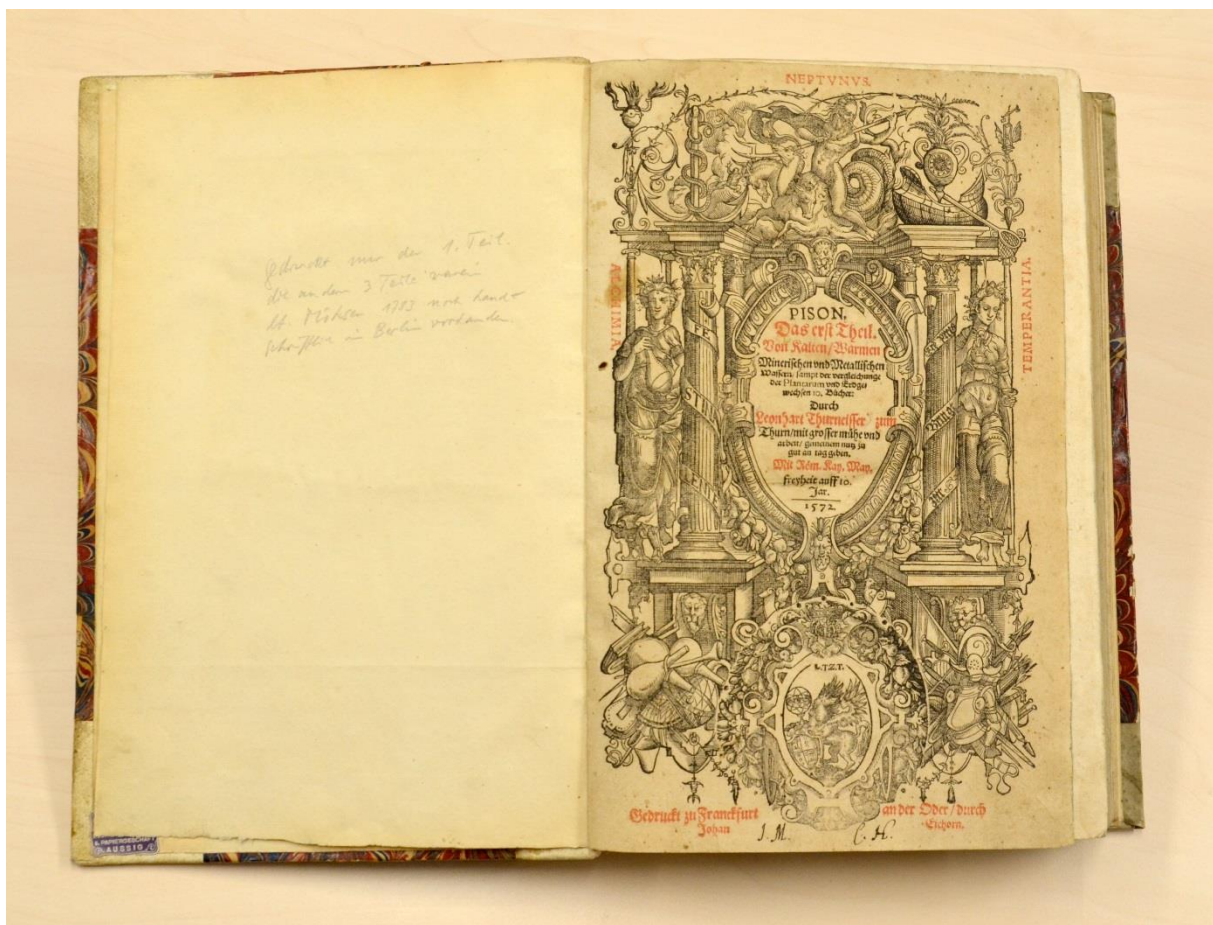 gedruckt nur der 1. Teil.
die andern 3 Teile waren
lt. Möhsen 1783 noch hand-
schriftlich in Berlin vorhanden.
PAPIERGESCHÄFT
AUSSIG
NEPTVNVS.
ALCHIMIA.
TEMPERANTIA.
PISON.
Das erst Theil.
Von Kalten/Warmen
Minerischen vnd Metallischen
Wassern/sampt der vergleichunge
der Plantarum vnd Erdge
wechsen 10. Bücher:
Durch
Leonhart Thurneisser zum
Thurn/mit grosser mühe vnd
arbeit/gemeinem nutz zu
gut an tag geben.
Mit Röm. Kay. May.
freyheit auff 10.
Jar.
1572
L.T.Z.T.
Gedruckt zu Franckfurt an der Oder/durch
Johan Eichorn.
J. M. C. H.